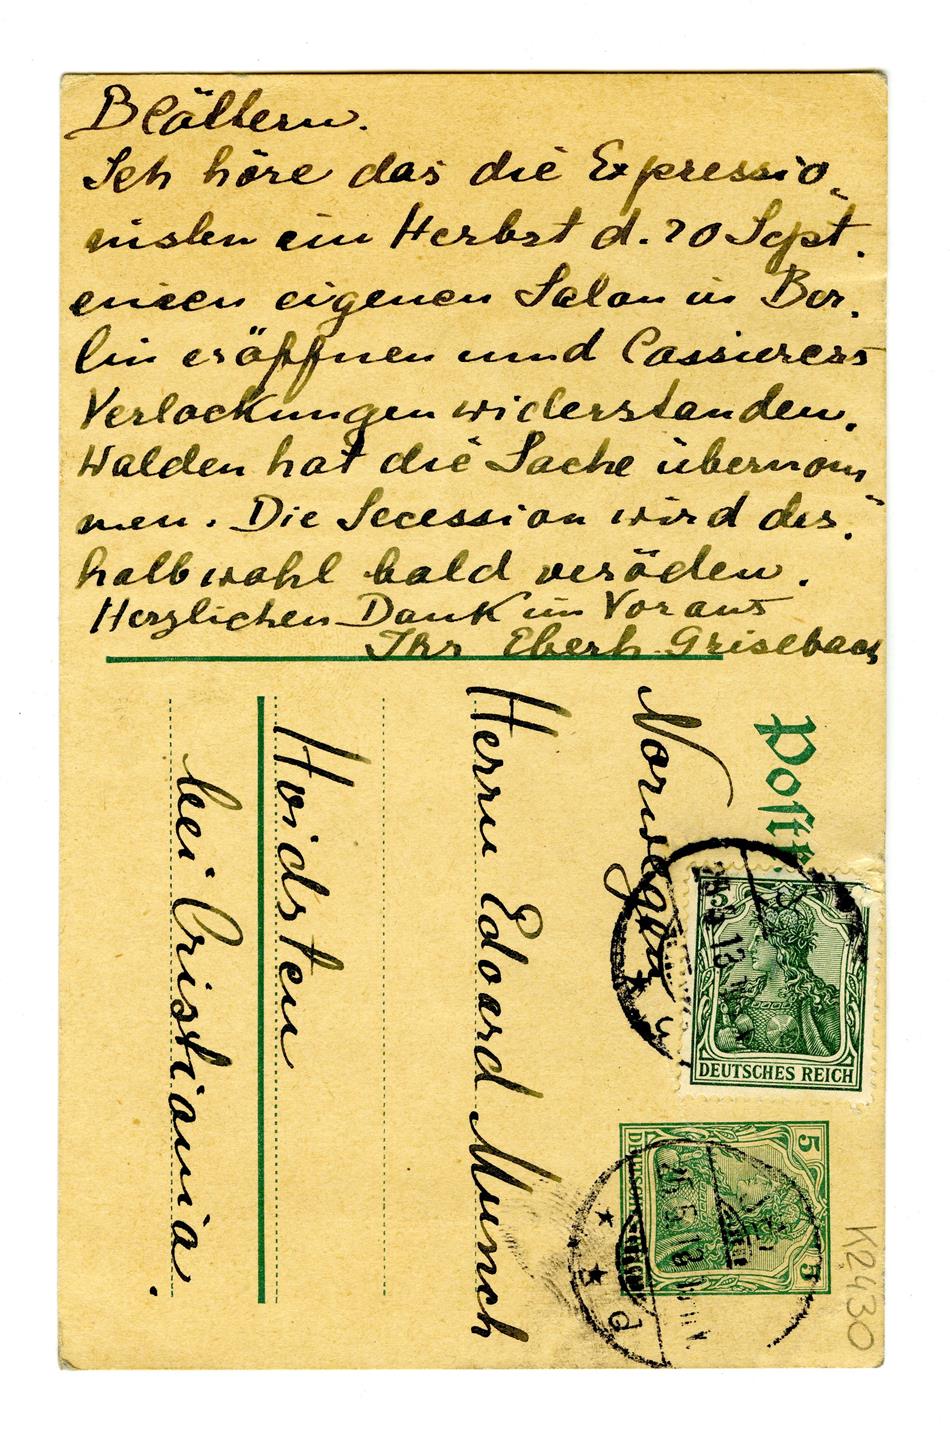 Blättern.
Ich höre das die Expressio-
nisten im Herbst d. 20 Sept.
einen eigenen Salon in Ber-
lin eröffnen und Cassierers
Verlockungen widerstanden.
Walden hat die Sache übernom-
men. Die Secession wird des-
halb wohl bald veröden.
Herzlichen Dank im Voraus
Ihr Eberh. Grisebach
Postk
Norwegen
Herrn Edoard Munch
Hvidsten
bei Cristiania.
5
DEUTSCHES REICH
5
5
K2430